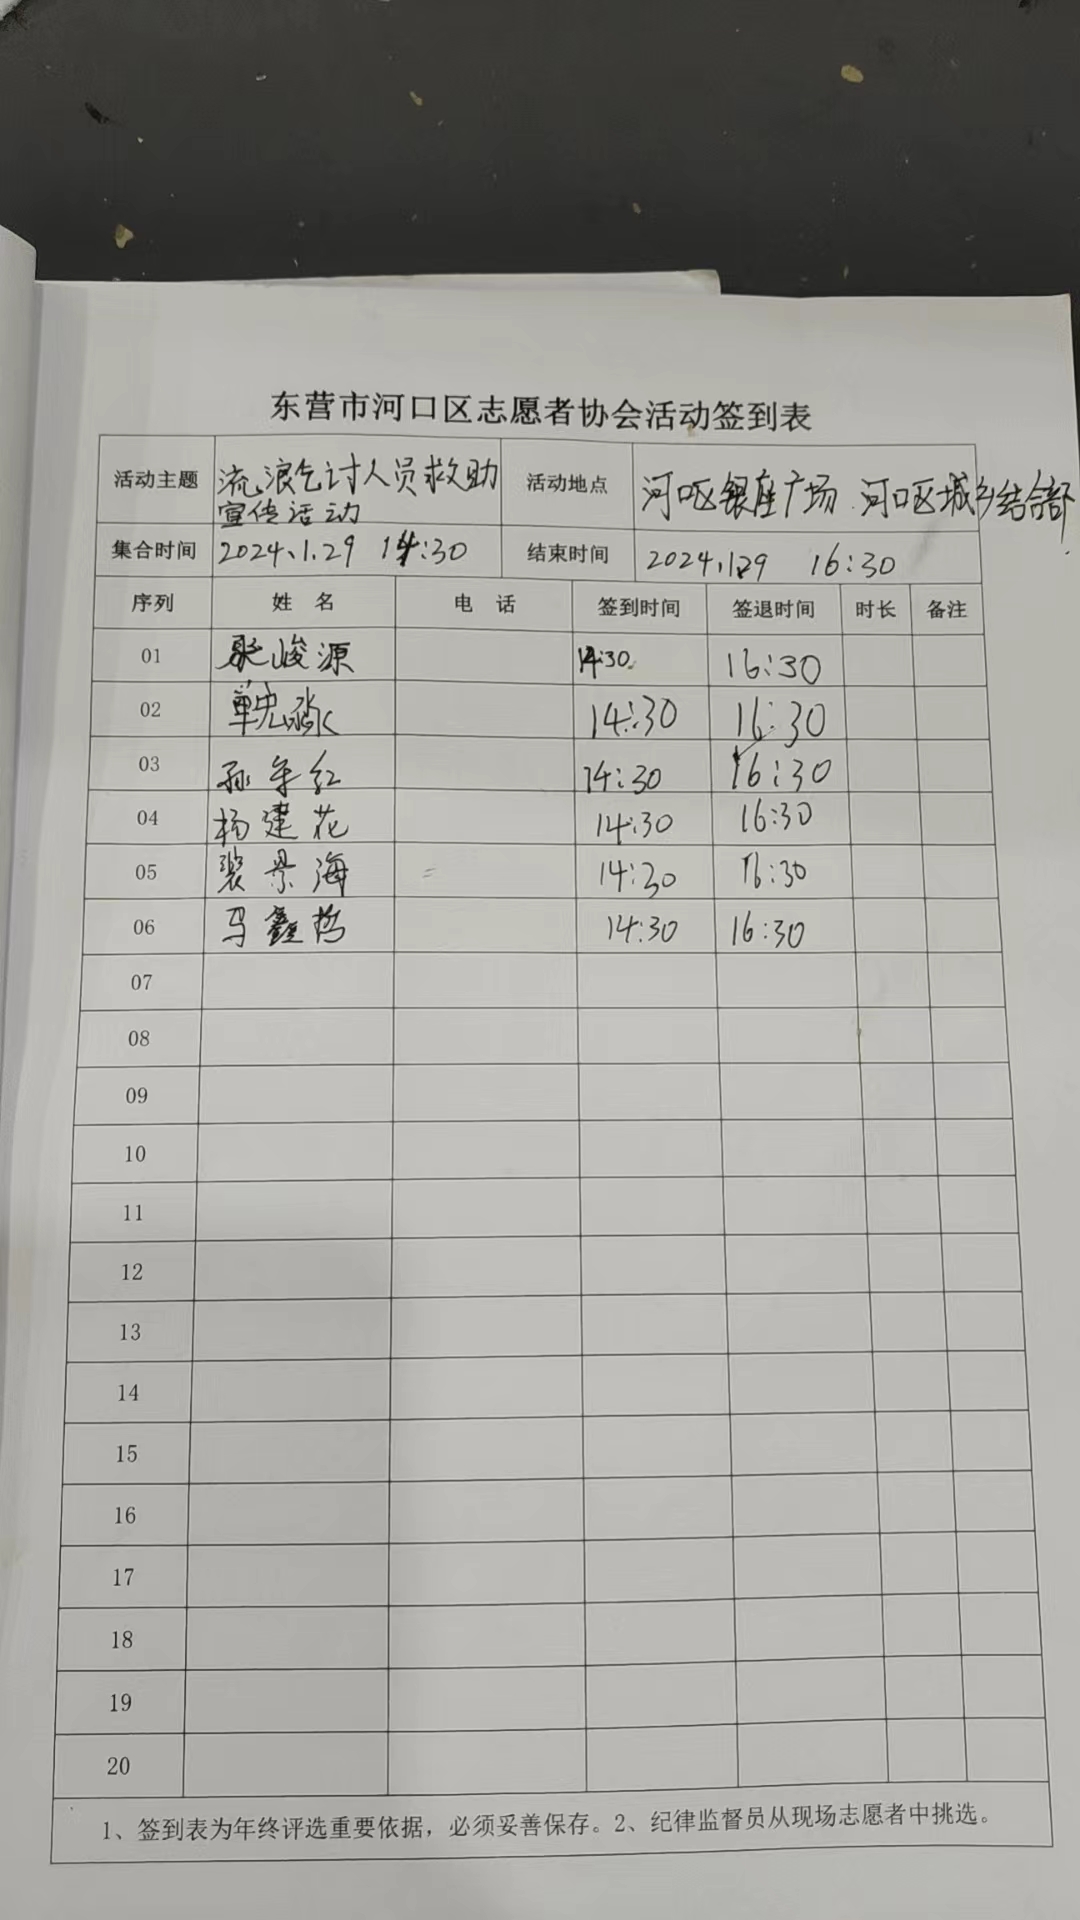 东营市河口区志愿者协会活动签到表
活动主题 流浪乞讨人员救助 活动地点 河口区银座广场 河口区城乡结合部
宣传活动
集合时间 2024.1.29 14:30 结束时间 2024.1.29 16:30
序列 姓名 电话 签到时间 签退时间 时长 备注
01 峻源 14:30 16:30
02 14:30 16:30
03 孙年红 14:30 16:30
04 杨建花 14:30 16:30
05 裴景海 14:30 16:30
06 马鑫哲 14:30 16:30
07
08
09
10
11
12
13
14
15
16
17
18
19
20
1、签到表为年终评选重要依据，必须妥善保存。2、纪律监督员从现场志愿者中挑选。